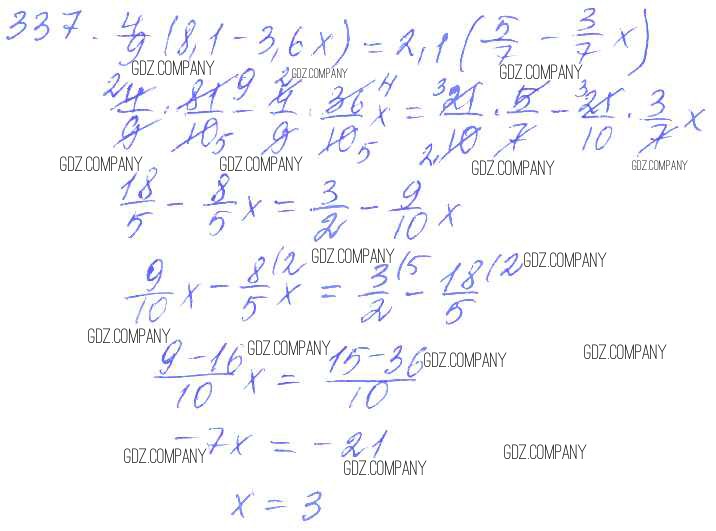 337. 4/9 (8,1 - 3,6x) = 2,1 (5/7 - 3/7 x)
GDZ.COMPANY GDZ.COMPANY GDZ.COMPANY
4/9 · 81/10 - 4/9 · 36/10 x = 21/10 · 5/7 - 21/10 · 3/7 x
GDZ.COMPANY GDZ.COMPANY GDZ.COMPANY GDZ.COMPANY
18/5 - 8/5 x = 3/2 - 9/10 x
GDZ.COMPANY GDZ.COMPANY
9/10 x - 8/5 (2 x = 3/2 (5 - 18/5 (2
GDZ.COMPANY GDZ.COMPANY GDZ.COMPANY GDZ.COMPANY
(9-16)/10 x = (15-36)/10
-7x = -21
GDZ.COMPANY GDZ.COMPANY GDZ.COMPANY
x = 3